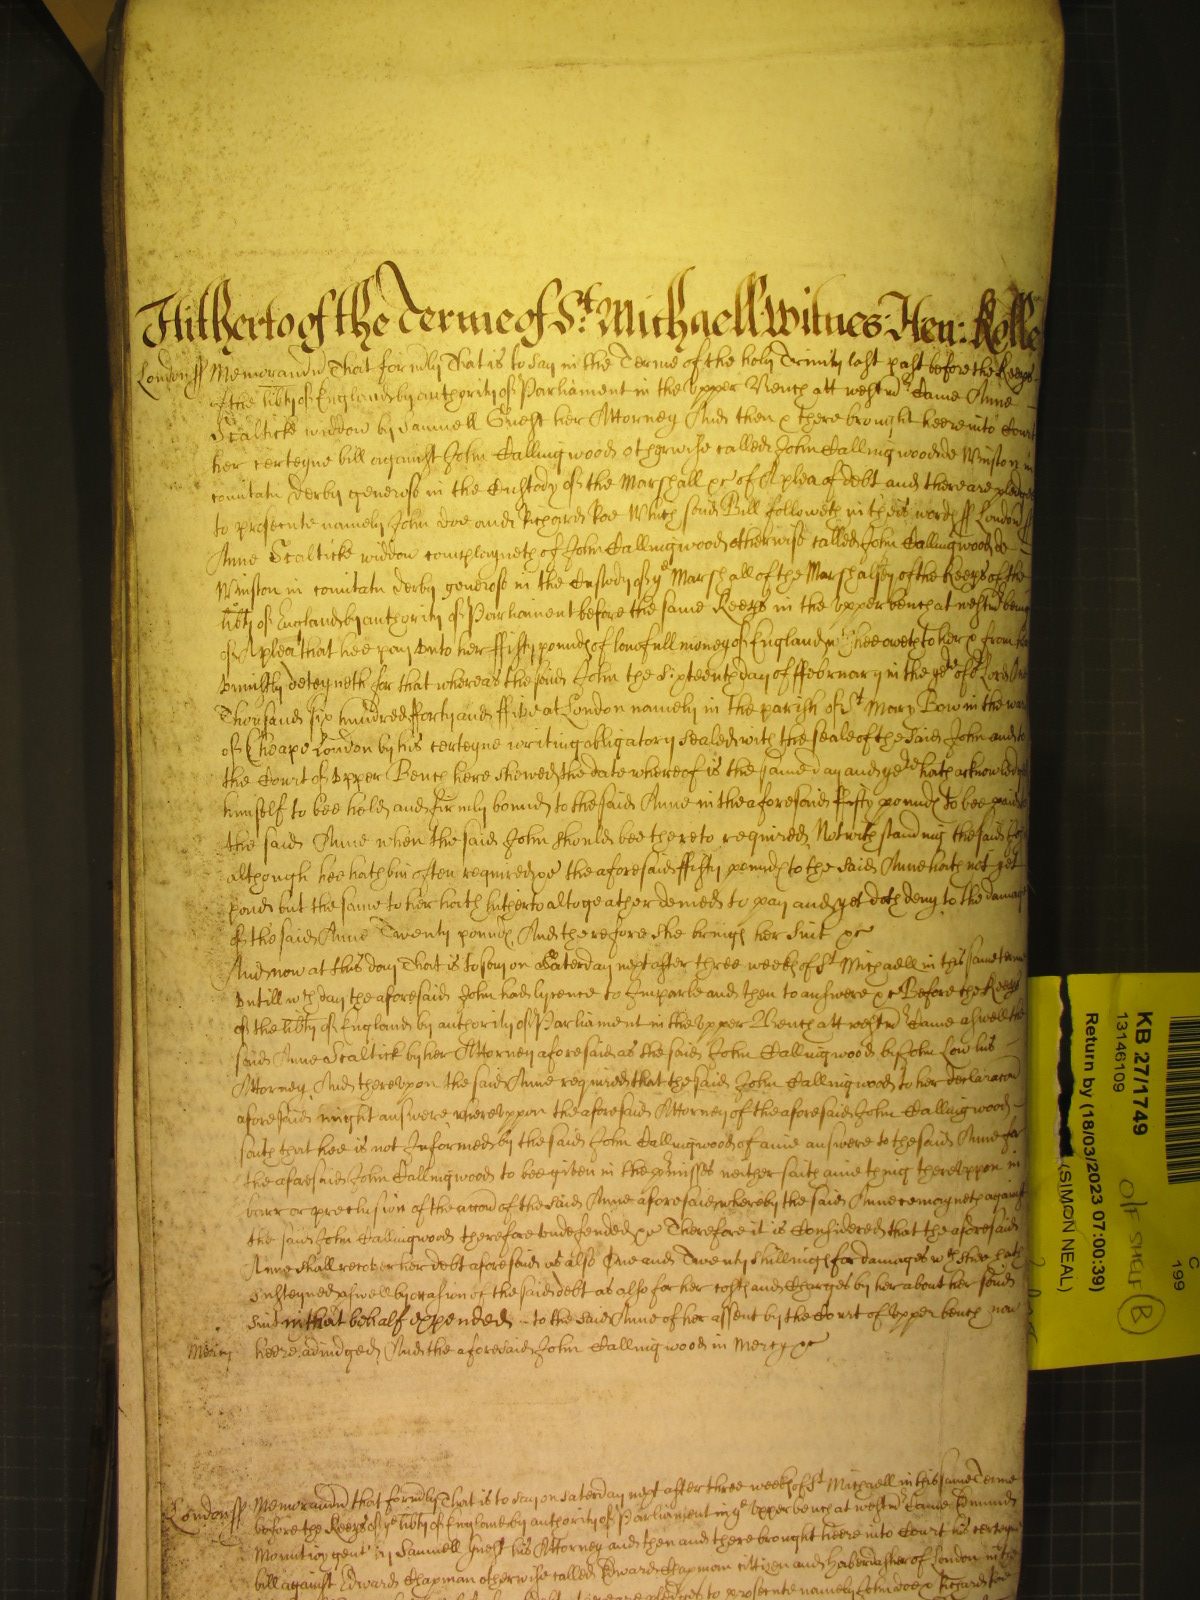 Hitherto of the Terme of St. Michaell Witnes: Hen: Rolle
London ss Memorand That formly That is to say in the Terme of the holy Trinity last past before the Keeps
of the libty of England by authority of Parliament in the Vpper Bench att westmr Came Anne
Scalticke widdow by Samuell Guest her Attorney And then & there brought heere into Court
her certeyne bill against John Callingwood otherwise called John Callingwood de Winston in
comitatu Derby generose in the Custody of the Marshall &c of A plea of debt and there are pledges
to prosecute namely John Doe and Richard Roe Which said Bill followeth in theis words ss London ss
Anne Scalticke widdow complayneth of John Callingwood otherwise called John Callingwood de
Winston in comitatu Derby generose in the Custody of ye Marshall of the Marshalsey of the Keeps of the
libty of England by authority of Parliament before the same Keeps in the Vpper bench at westmr being
of A plea that hee pay vnto her ffifty pounds of lawfull money of England wch hee oweth to her & from her
vniustly deteyneth for that whereas the said John the Sixteenth day of ffebruary in the yeare of or Lord One
Thousand six hundred fforty and ffive at London namely in the parish of St Mary Bow in the ward
of Cheape London by his certeyne writing obligatory sealed with the seale of the said John and to
the Court of Vpper Bench here shewed the date whereof is the same day and yeare hath acknowledged
himself to bee held and firmly bound to the said Anne in the aforesaid ffifty pounds to bee paid to
the said Anne when the said John should bee thereto required Notwithstanding the said John
although hee hath bin often required &c the aforesaid ffifty pounds to the said Anne hath not yet
paid but the same to her hath hitherto altogeather denied to pay and yet doth deny to the damage
of the said Anne Twenty pounds And therefore she brings her suit &c
And now at this day That is to say on Saterday next after three weeks of St Michaell in this same terme
vntill wch day the aforesaid John had lycence to Imparle and then to answere &c Before the Keeps
of the libty of England by authority of Parliament in the Vpper Bench att westmr Came aswell the
said Anne Scaltick by her Attorney aforesaid as the said John Callingwood by John Low his
Attorney And therevpon the said Anne required that the said John Callingwood to her declaracon
aforesaid might answere wherevppon the aforesaid Attorney of the aforesaid John Callingwood
saith that hee is not Informed by the said John Callingwood of anie answere to the said Anne for
the aforesaid John Callingwood to bee given in the pmisses neither saith anie thing therevppon in
barr or preclusion of the accon of the said Anne aforesaid whereby the said Anne remayneth against
the said John Callingwood therefore vndefended &c Therefore it is Considered that the aforesaid
Anne shall recover her debt aforesaid as also One and Twenty shillings for damages wch shee hath
susteyned aswell by occasion of the said debt as also for her costs and Charges by her about her said
suit in that behalf expended to the said Anne of her assent by the Court of Vpper bench now
Mercy heere adiudged And the aforesaid John Callingwood in Mercy &c
London ss Memorand that formly That is to say on Saterday next after three weeks of St Michaell in this same Terme
before the Keeps of ye libty of England by authority of Parliament in ye Vpper bench at westmr Came Edmund
gent by Samuell Guest his Attorney and then and there brought heere into Court his certeyne
bill against Edward Chapman otherwise called Edward Chapman cittizen and Haberdasher of London in the
there are pledges to prosecute namely John doe & Richard Roe
KB 27/1749
13146109
Return by (18/03/2023 07:00:39)
(SIMON NEAL)
B
C
199